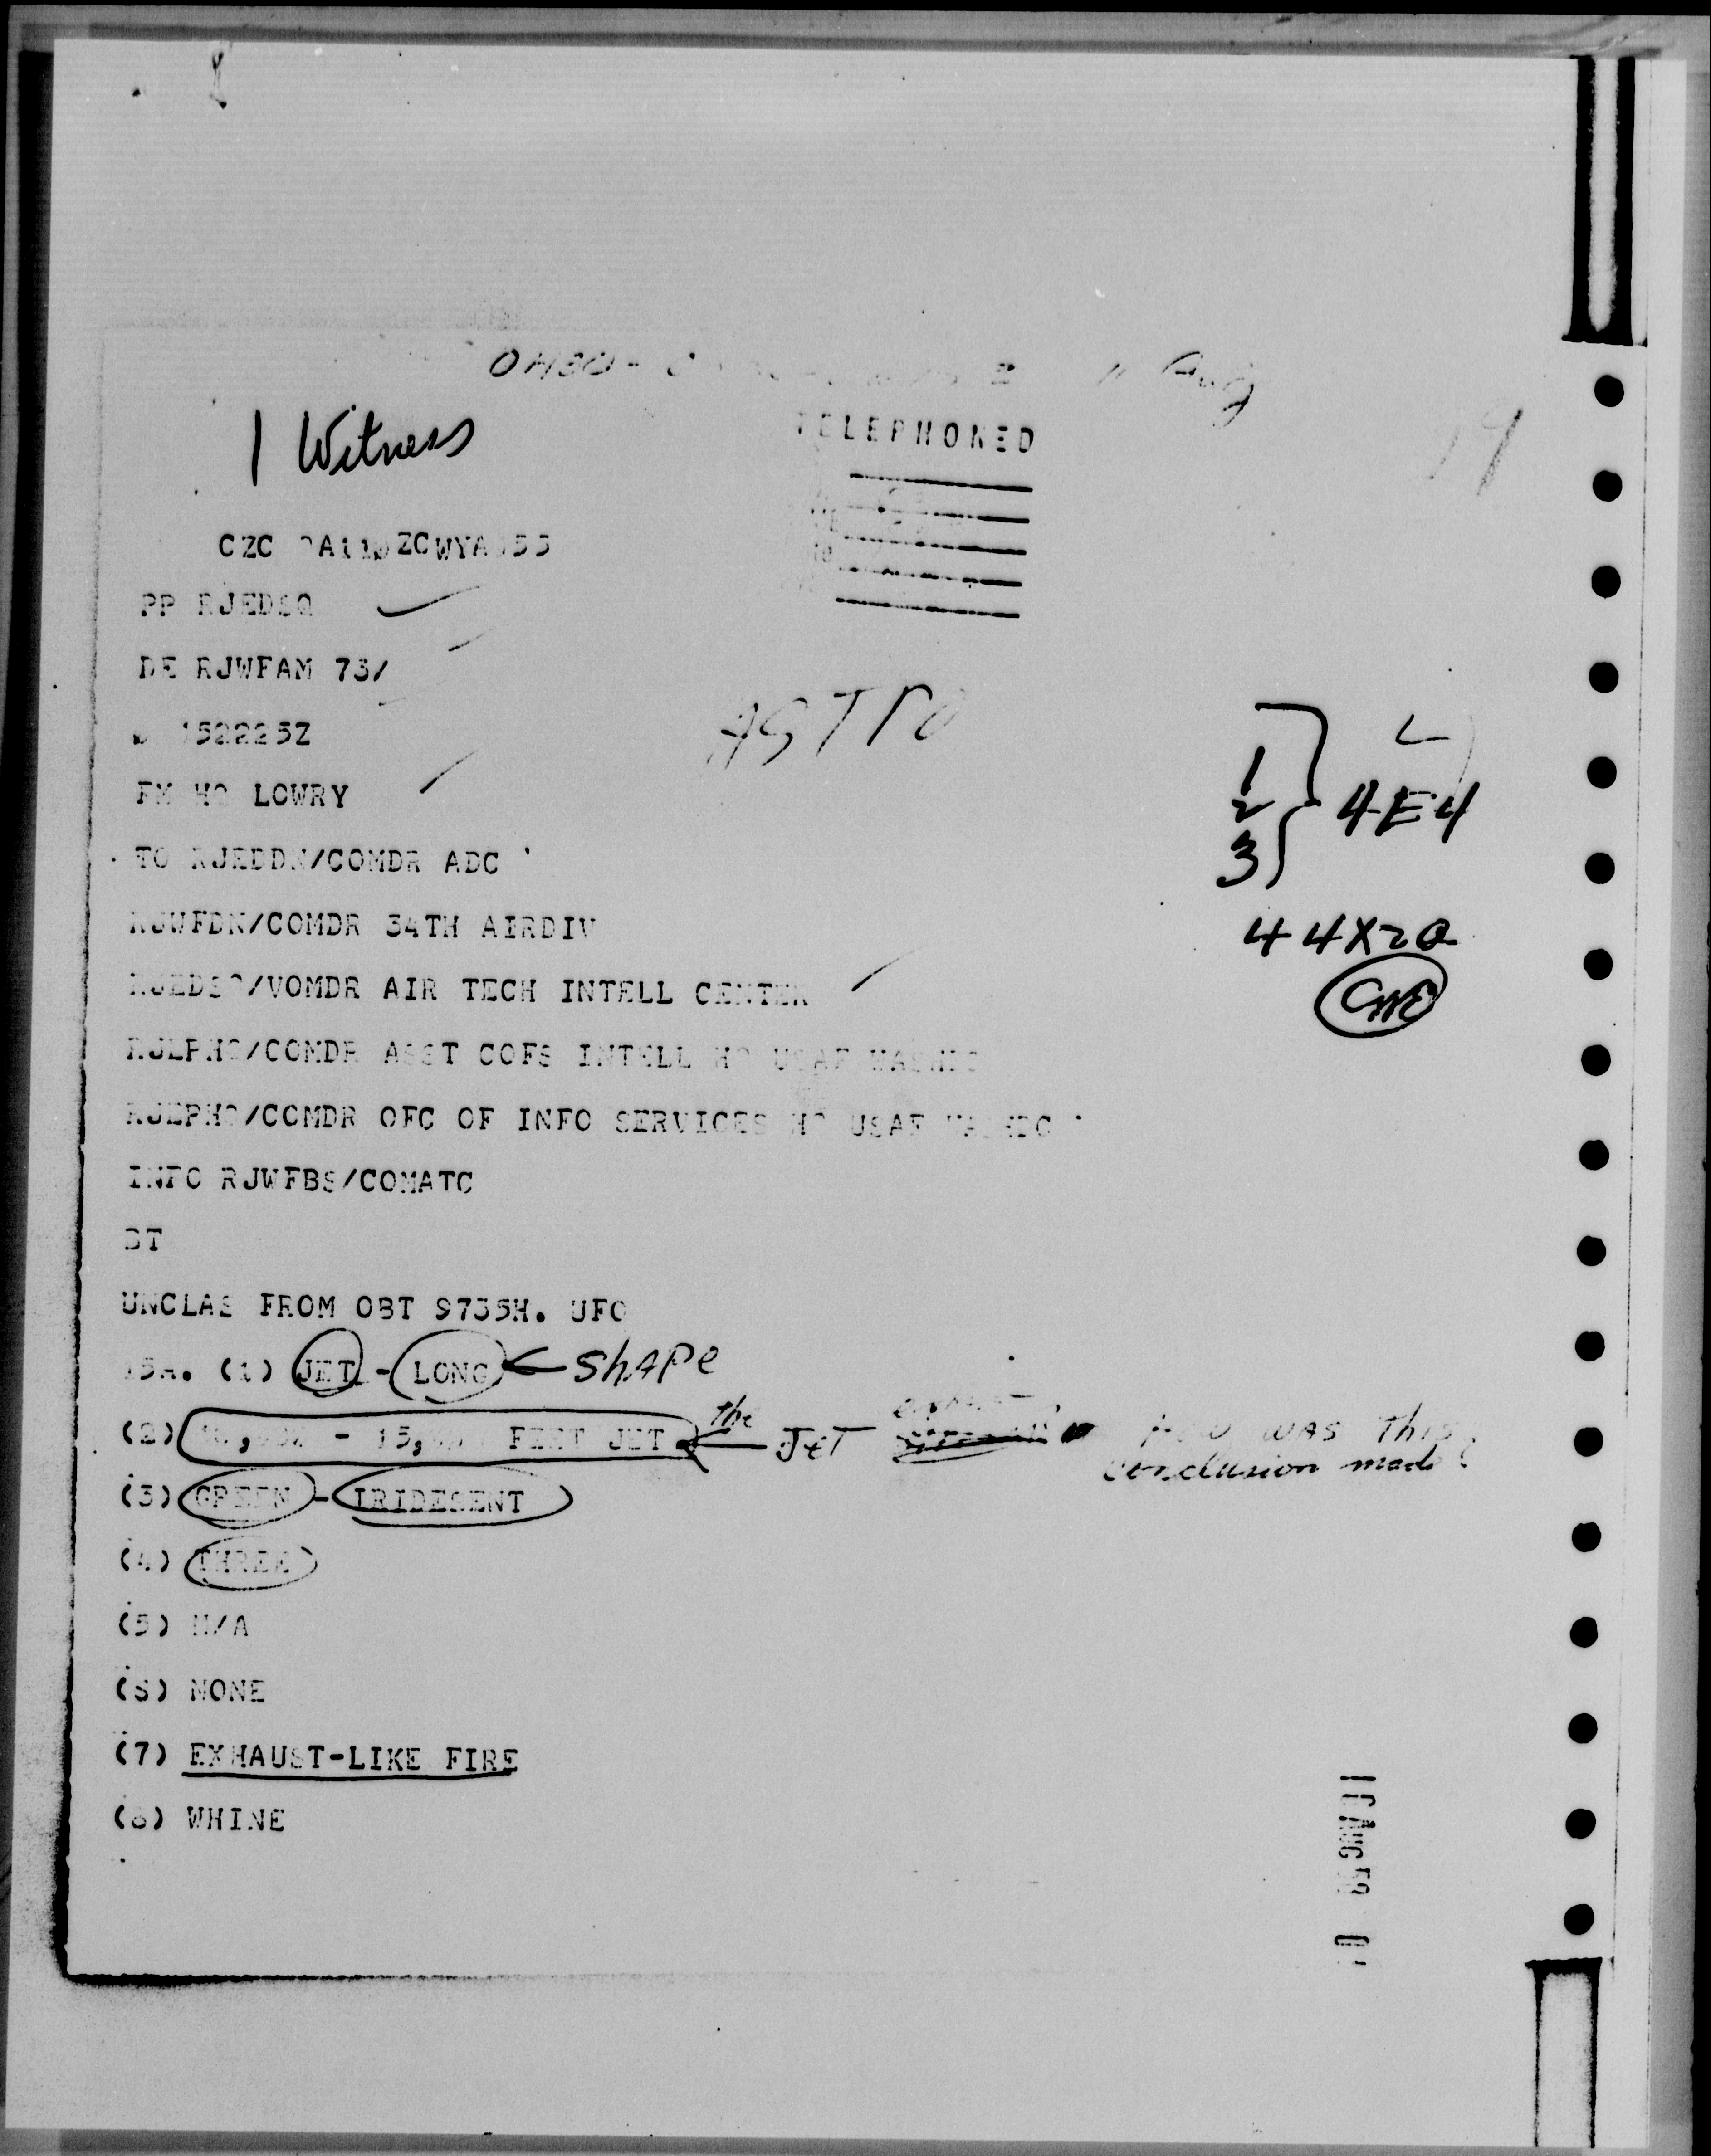 Aug
1 Witness
TELEPHONED
PP RJEDSQ
DE RJWFAM 73/
152225Z
ASTRO
FM HQ LOWRY
1
2
3
4E4
TO RJEDDN/COMDR ADC
RJWFDN/COMDR 34TH AIRDIV
44X20
RJEDSQ/VOMDR AIR TECH INTELL CENTER
RJEPHQ/COMDR ASST COFS INTELL HQ USAF WASHDC
RJEPHQ/COMDR OFC OF INFO SERVICES HQ USAF WASHDC
INFO RJWFBS/COMATC
BT
UNCLAS FROM OBT 9735H. UFO
(1) JET - LONG SHAPE
(2) - 15, FEET JET the JET HOW WAS This conclusion made
(3) GREEN - IRIDESENT
(4) THREE
(5) N/A
(S) NONE
(7) EXHAUST-LIKE FIRE
(8) WHINE